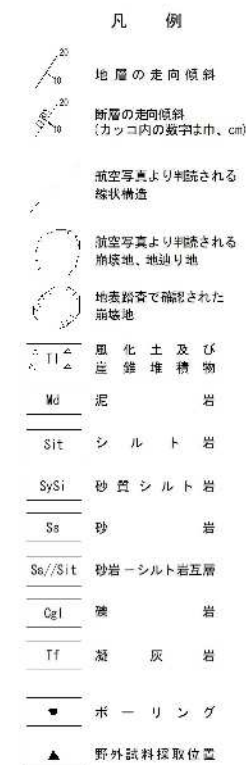 凡 例
20
10
地層の走向傾斜
20
10
断層の走向傾斜
(カッコ内の数字は巾、cm)
航空写真より判読される
線状構造
航空写真より判読される
崩壊地、地辷り地
地表踏査で確認された
崩壊地
Tl 風化土及び
崖錐堆積物
Md 泥岩
Sit シルト岩
SySi 砂質シルト岩
Ss 砂岩
Ss//Sit 砂岩－シルト岩互層
Cgl 礫岩
Tf 凝灰岩
ボーリング
野外試料採取位置